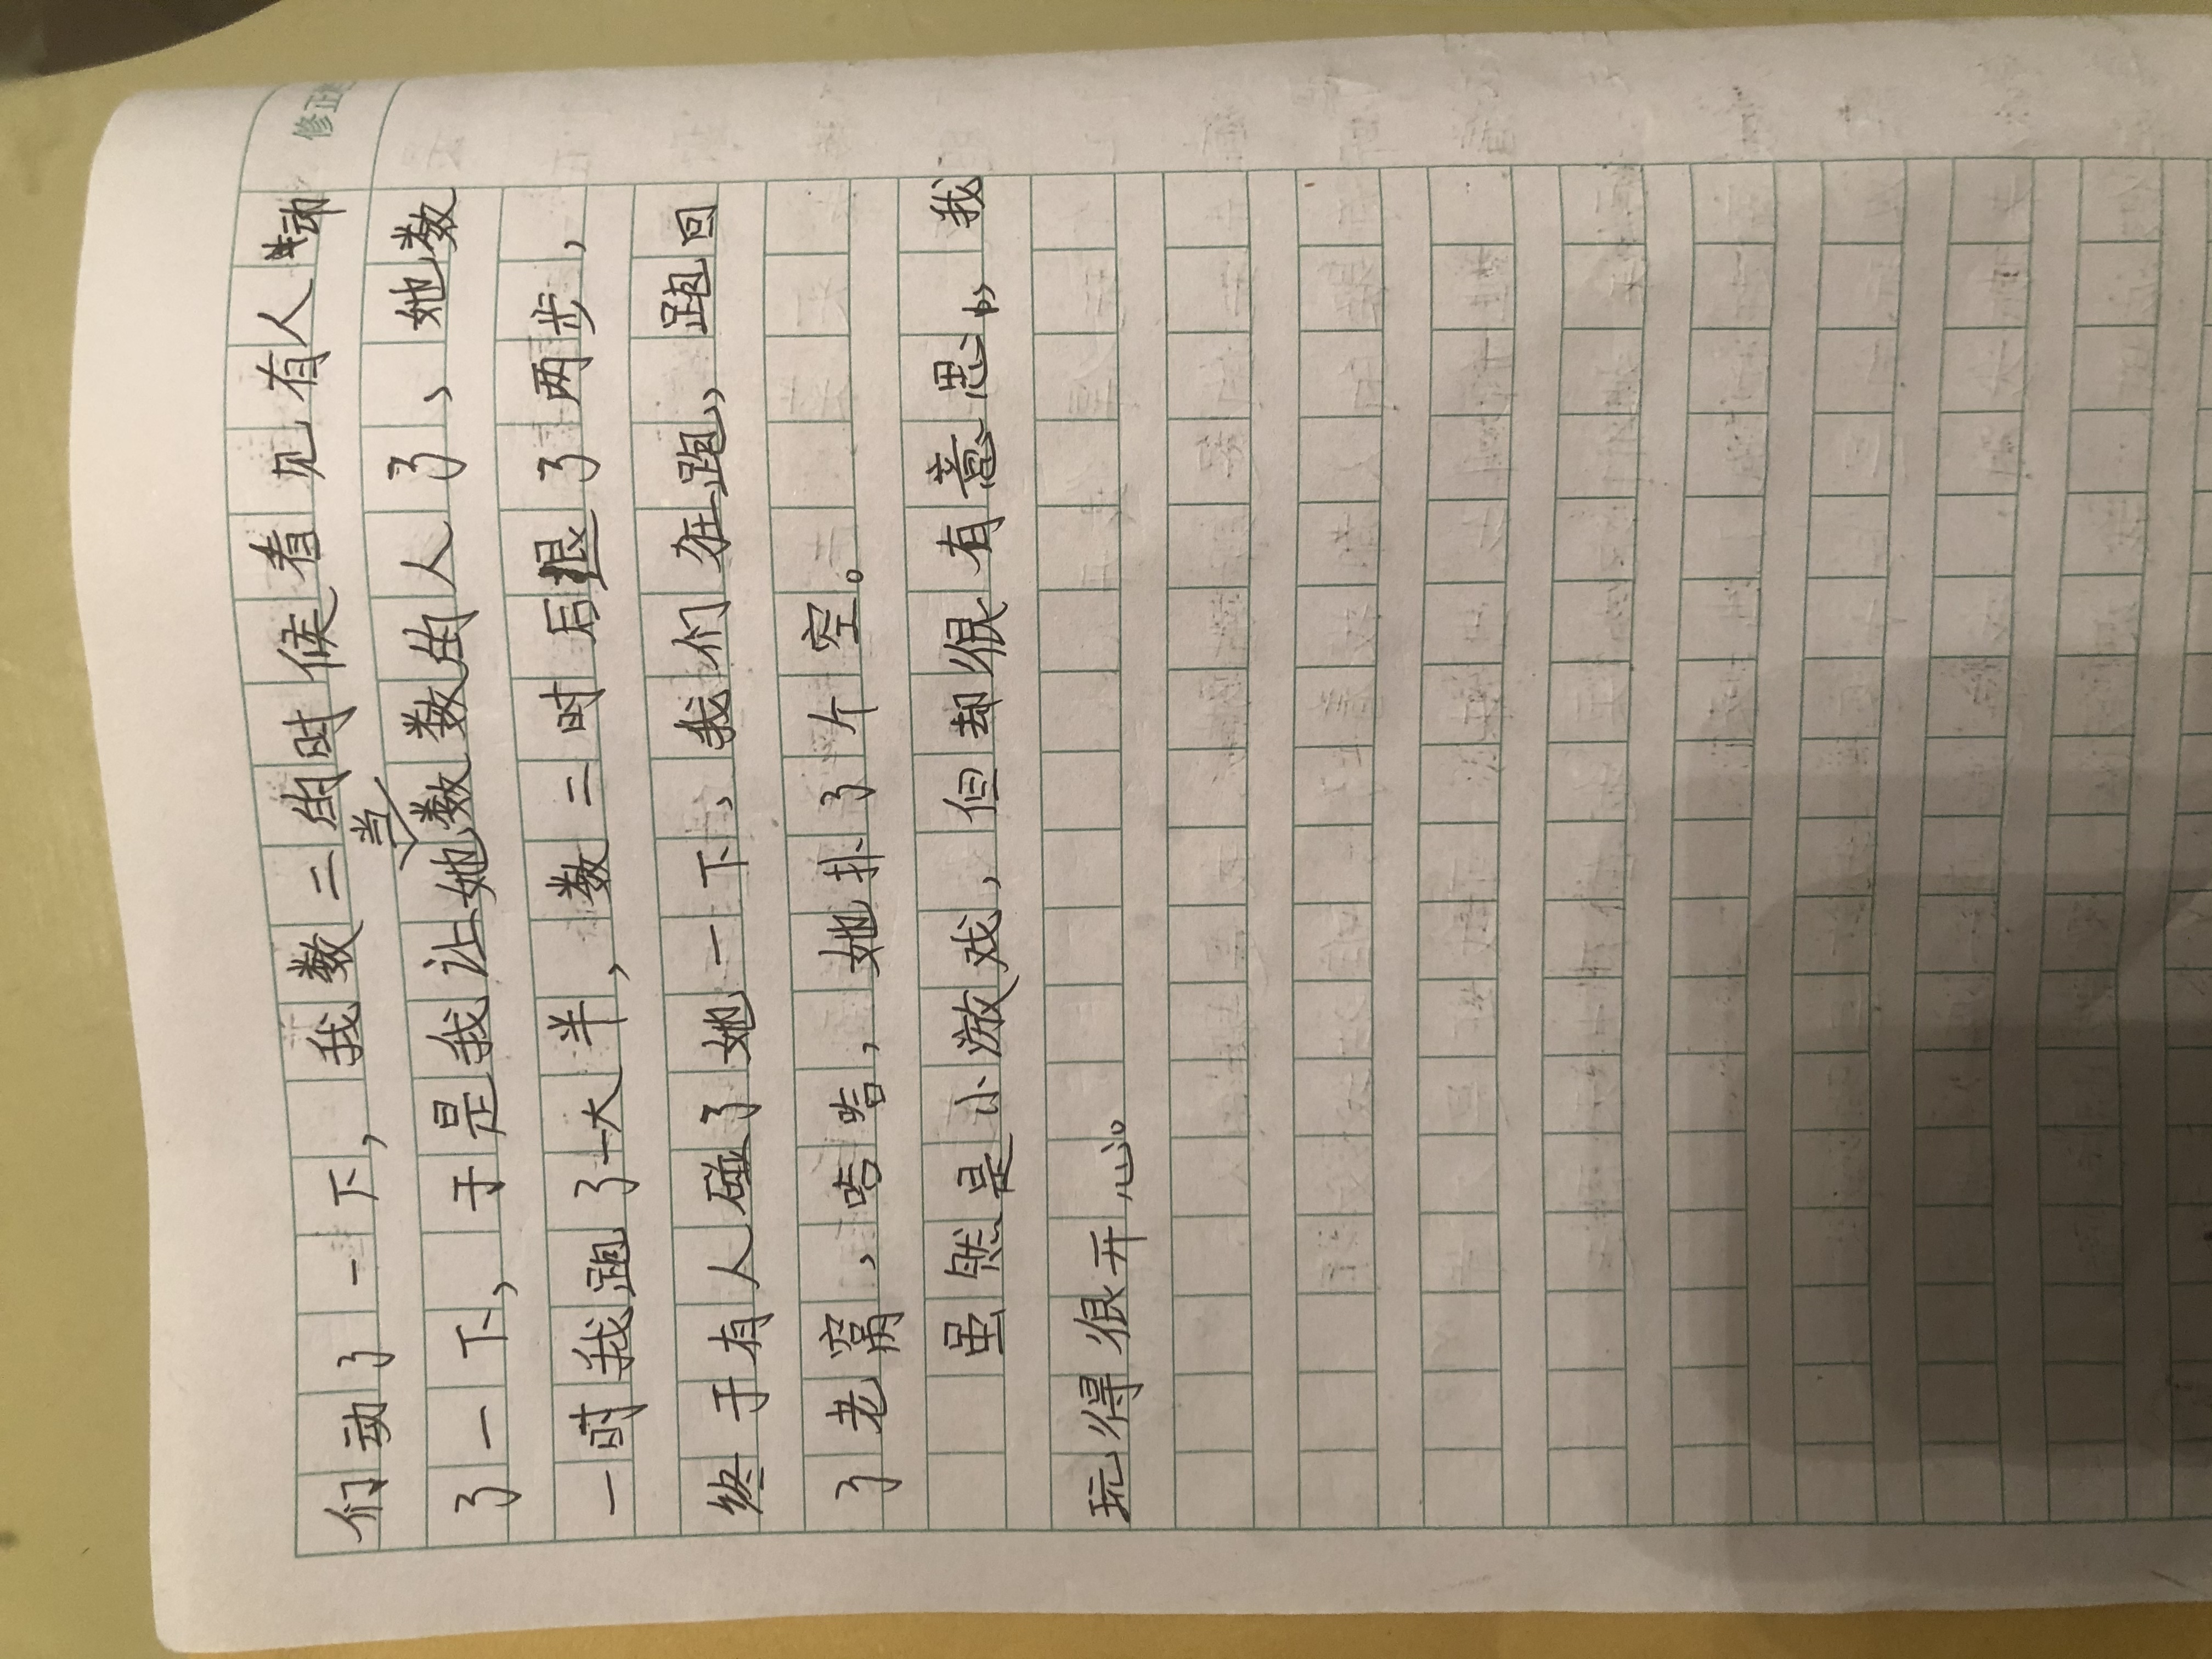 修正
们动了一下，我数二的时候看见有人动
了一下，于是我让她当数数的人了、她数
一时我跑了一大半，数二时后退了两步，
终于有人碰了她一下、我们在跑，跑回
了老窝、哈哈，她扑了个空。
虽然是小游戏，但却很有意思，我
玩得很开心。